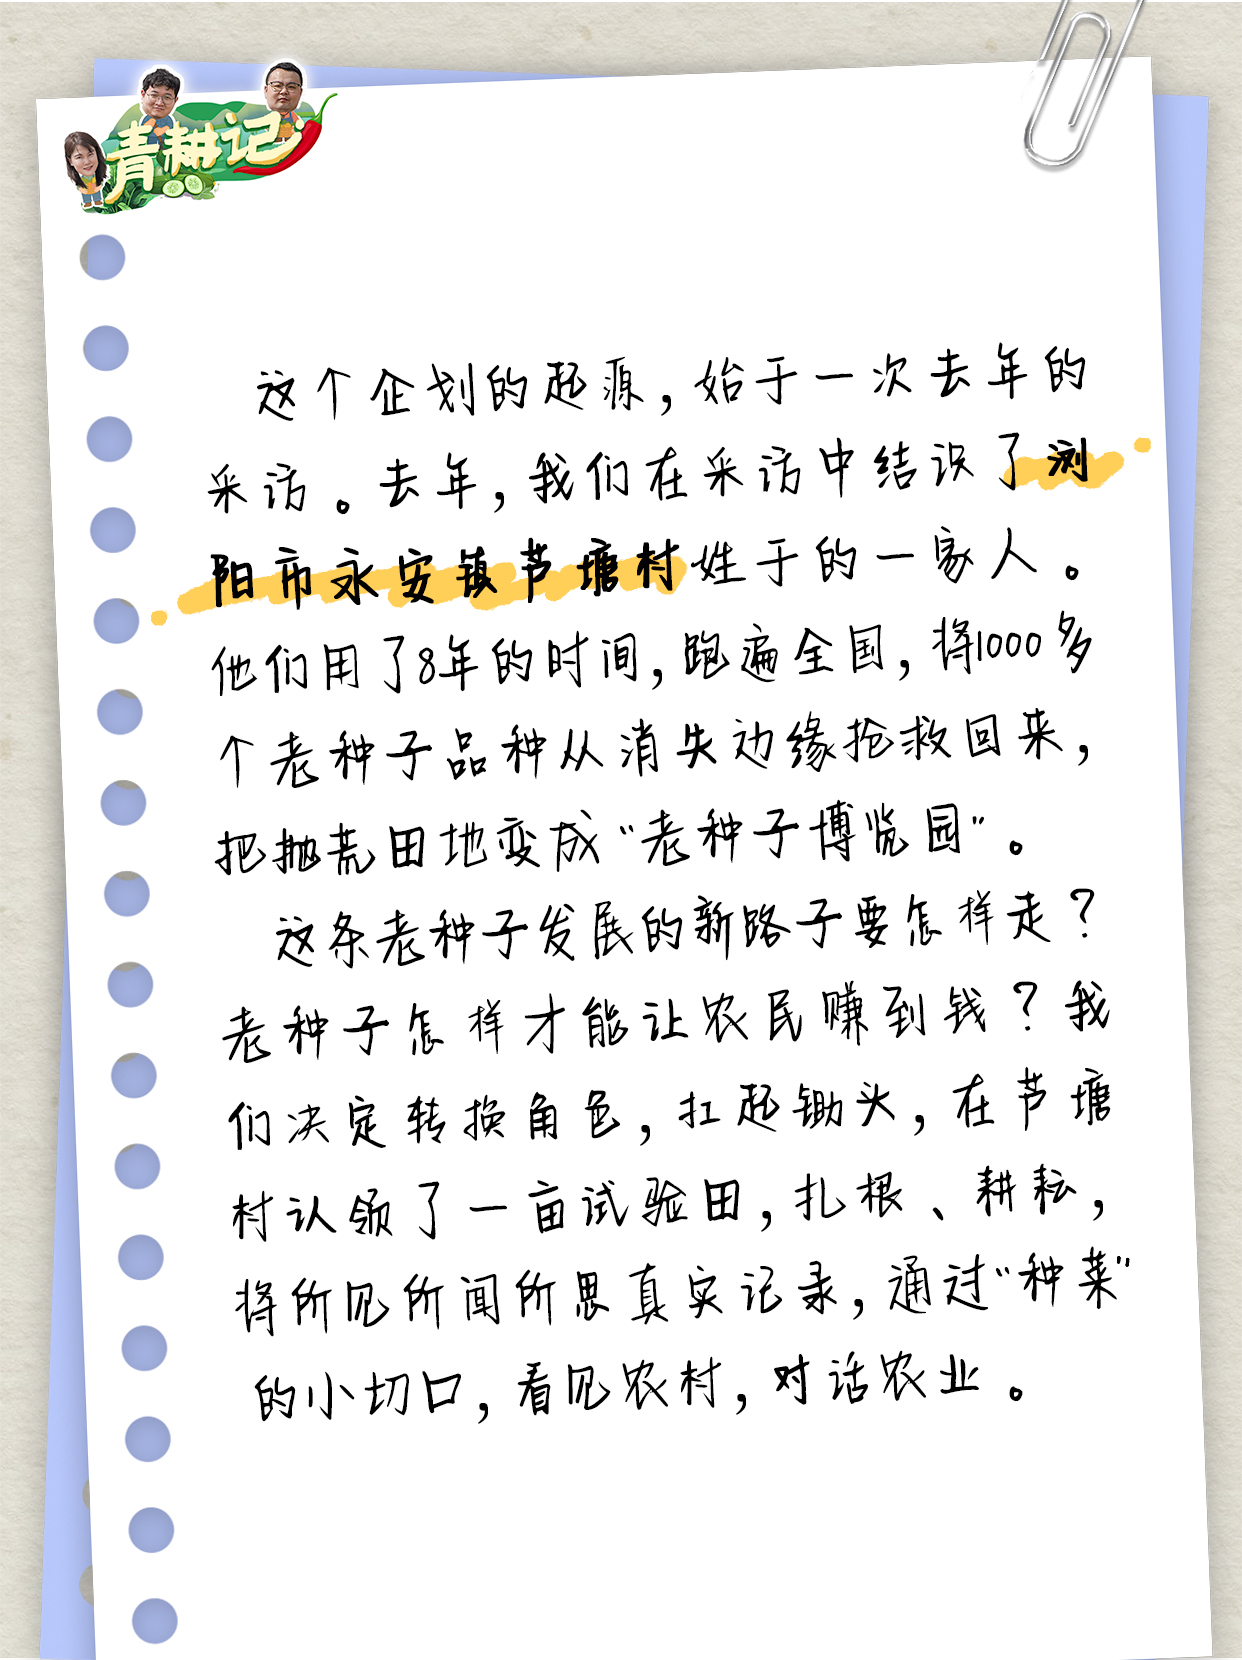 青耕记
这个企划的起源，始于一次去年的
采访。去年，我们在采访中结识了浏
阳市永安镇芦塘村姓于的一家人。
他们用了8年的时间，跑遍全国，将1000多
个老种子品种从消失边缘抢救回来，
把抛荒田地变成“老种子博览园”。
这条老种子发展的新路子要怎样走？
老种子怎样才能让农民赚到钱？我
们决定转换角色，扛起锄头，在芦塘
村认领了一亩试验田，扎根、耕耘，
将所见所闻所思真实记录，通过“种菜”
的小切口，看见农村，对话农业。